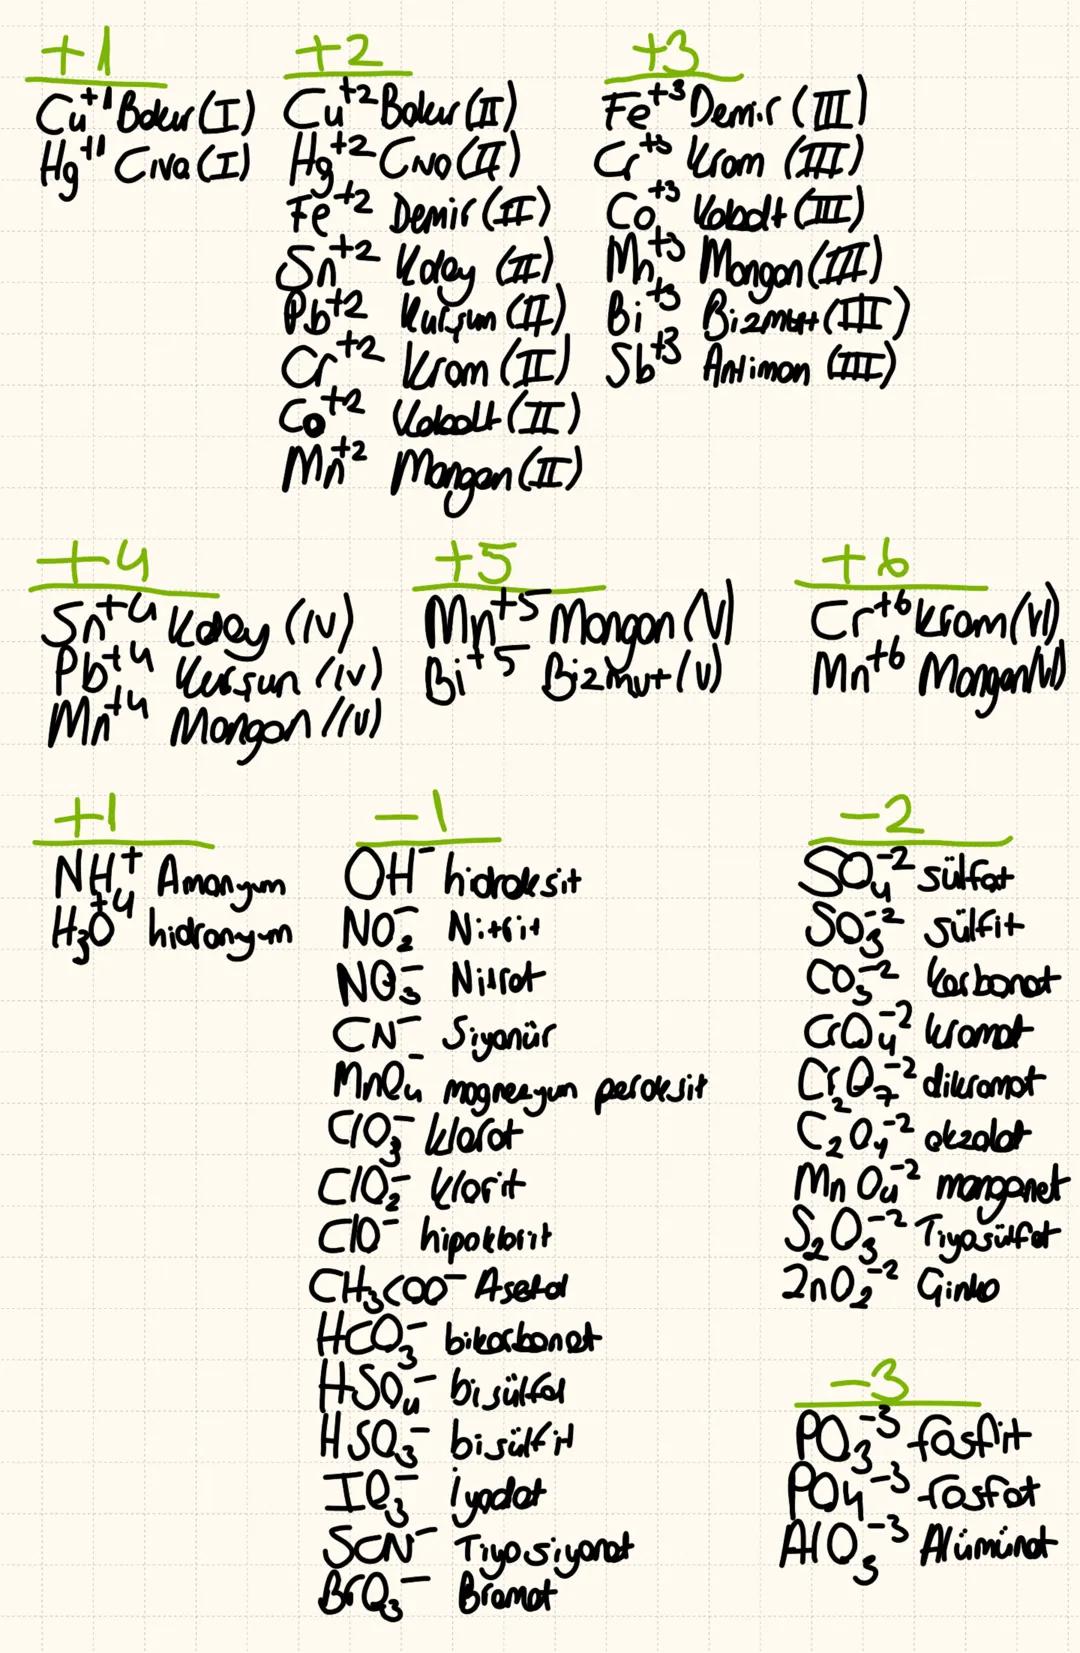 +1
Cu⁺¹ Bakır (I)
Hg⁺¹ Civa (I)
+2
Cu⁺² Bakır (II)
Hg⁺² Civa (II)
Fe⁺² Demir (II)
Sn⁺² Kalay (II)
Pb⁺² Kurşun (II)
Cr⁺² Krom (II)
Co⁺² Kobalt (II)
Mn⁺² Mangan (II)
+3
Fe⁺³ Demir (III)
Cr⁺³ Krom (III)
Co⁺³ Kobalt (III)
Mn⁺³ Mangan (III)
Bi⁺³ Bizmut (III)
Sb⁺³ Antimon (III)
+4
Sn⁺⁴ Kalay (IV)
Pb⁺⁴ Kurşun (IV)
Mn⁺⁴ Mangan (IV)
+5
Mn⁺⁵ Mangan (V)
Bi⁺⁵ Bizmut (V)
+6
Cr⁺⁶ Krom (VI)
Mn⁺⁶ Mangan (VI)
+1
NH₄⁺ Amonyum
H₃O⁺ hidronyum
-1
OH⁻ hidroksit
NO₂⁻ Nitrit
NO₃⁻ Nitrat
CN⁻ Siyanür
MnO₄⁻ magnezyum peroksit
ClO₃⁻ klorat
ClO₂⁻ klorit
ClO⁻ hipoklorit
CH₃COO⁻ Asetat
HCO₃⁻ bikarbonat
HSO₄⁻ bisülfat
HSO₃⁻ bisülfit
IO₃⁻ İyodat
SCN⁻ Tiyosiyanat
BrO₃⁻ Bromat
-2
SO₄⁻² sülfat
SO₃⁻² sülfit
CO₃⁻² karbonat
CrO₄⁻² kromat
Cr₂O₇⁻² dikromat
C₂O₄⁻² okzalat
MnO₄⁻² manganat
S₂O₃⁻² Tiyosülfat
ZnO₂⁻² Ginko
-3
PO₃⁻³ fosfit
PO₄⁻³ fosfat
AlO₃⁻³ Alüminat